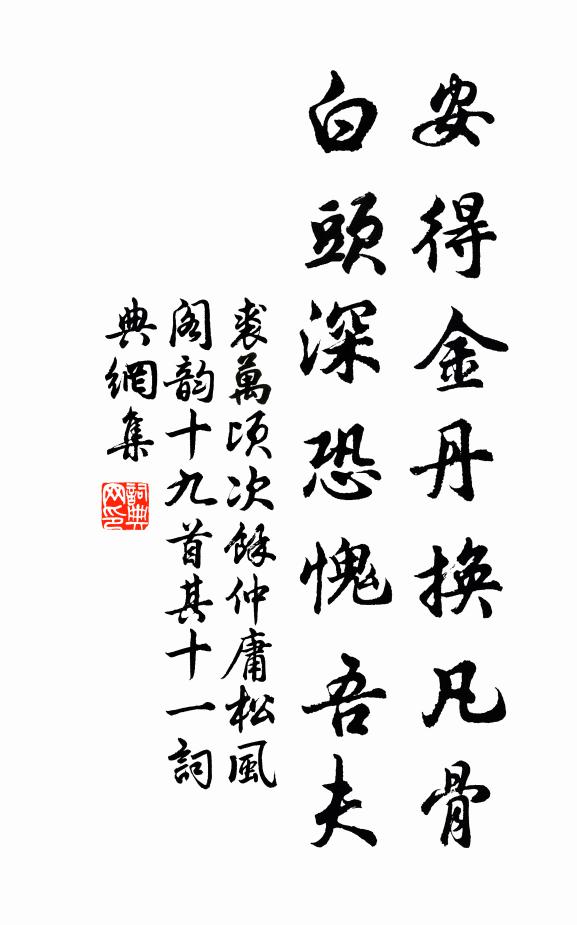 安得金丹換凡骨
白頭深恐愧吾夫
裘萬頃次餘仲庸松風
閣韵十九首其十一詞
典網集
詞典
网印